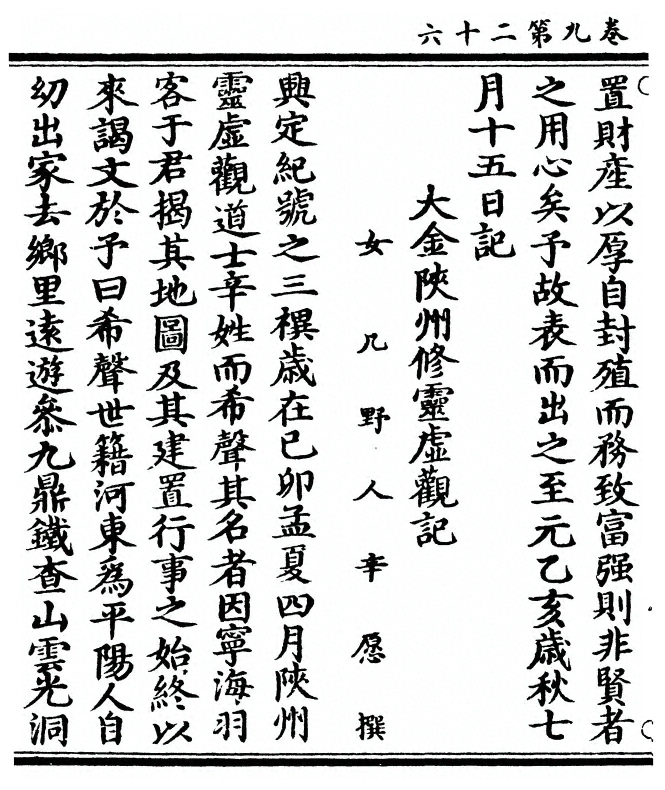 六十二第九卷
置財產以厚自封殖而務致富强則非賢者
之用心矣予故表而出之至元乙亥歲秋七
月十五日記
大金陝州修靈虛觀記
女几野人辛愿撰
興定紀號之三禩歲在己卯孟夏四月陝州
靈虛觀道士辛姓而希聲其名者因寧海羽
客于君揭其地圖及其建置行事之始終以
來謁文於予曰希聲世籍河東為平陽人自
幼出家去鄉里遠遊叅九鼎鐵查山雲光洞